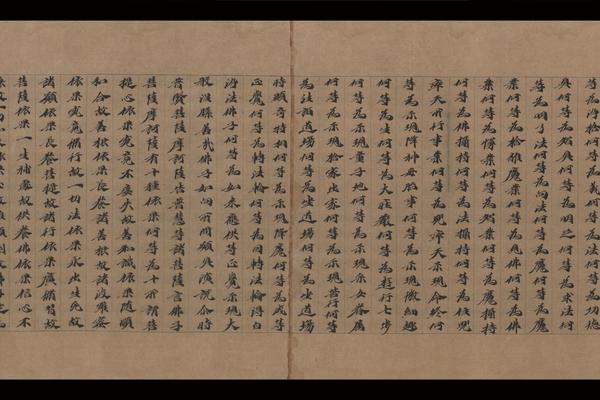 等為淨捨何等為義何等為功德
具何等為智具何等為明足何等為求法何
等為明了法何等為向法何等為魔何等為魔
業何等為捨離魔業何等為見佛何等為佛
業何等為慢業何等為智業何等為魔攝持
何等為佛攝持何等為法攝持何等為住兜
率天所行事業何等為兜率天示現命終何
等為示現降神母胎事何等為示現微細趣
何等為生何等為大莊嚴何等為遊行七步
何等為示現童子地何等為示現采女眷屬
何等為示現捨家出家何等為示現苦行何等
為往詣道場何等為坐道場何等為坐道場
時顯奇特相何等為示現降魔何等為成等
正覺何等為轉法輪何等為因轉法輪得白
淨法佛子何等為如來應供等正覺示現大
般涅槃善哉佛子如向所問願具演說爾時
普賢菩薩摩訶薩告普慧等諸菩薩言佛子
菩薩摩訶薩有十種依果何等為十所謂菩
提心依果究竟不忘失故善知識依果隨順
和合故善根依果長養諸善根故諸波羅蜜
依果究竟修行故一切法依果永出生死故
諸願依果長養菩提故諸行依果廣修習故
菩薩依果一生補處故供養佛依果信心不